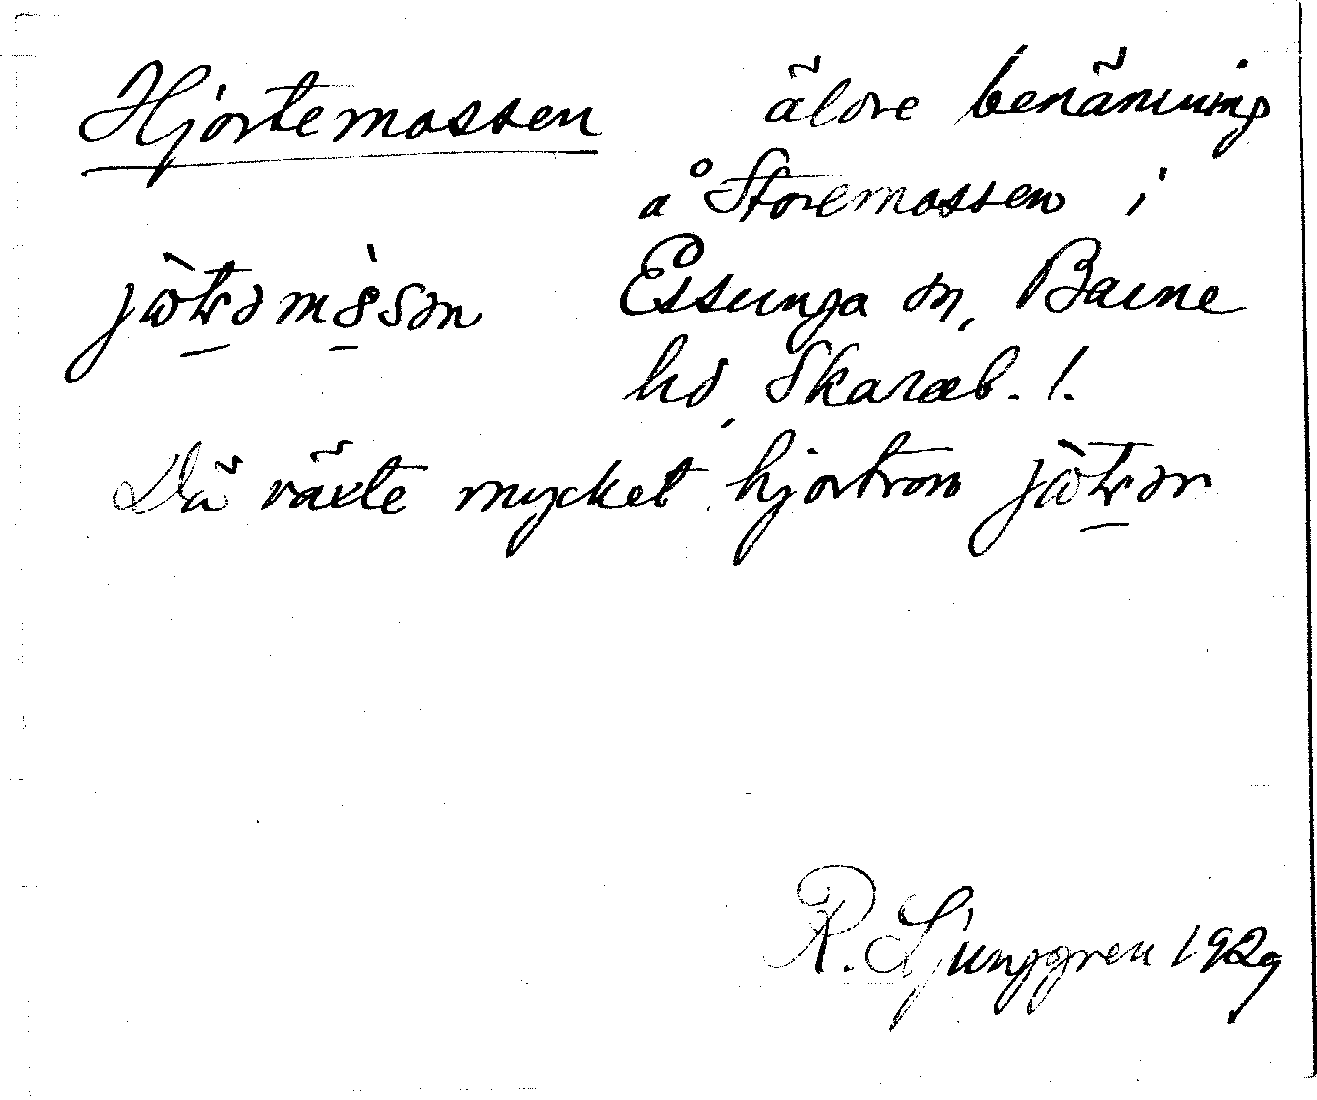 Hjortemossen äldre benämning
å Storemossen i
Essunga sn, Barne
hd, Skarab. l.
Då växte mycket hjortron
R. Ljunggren 1929